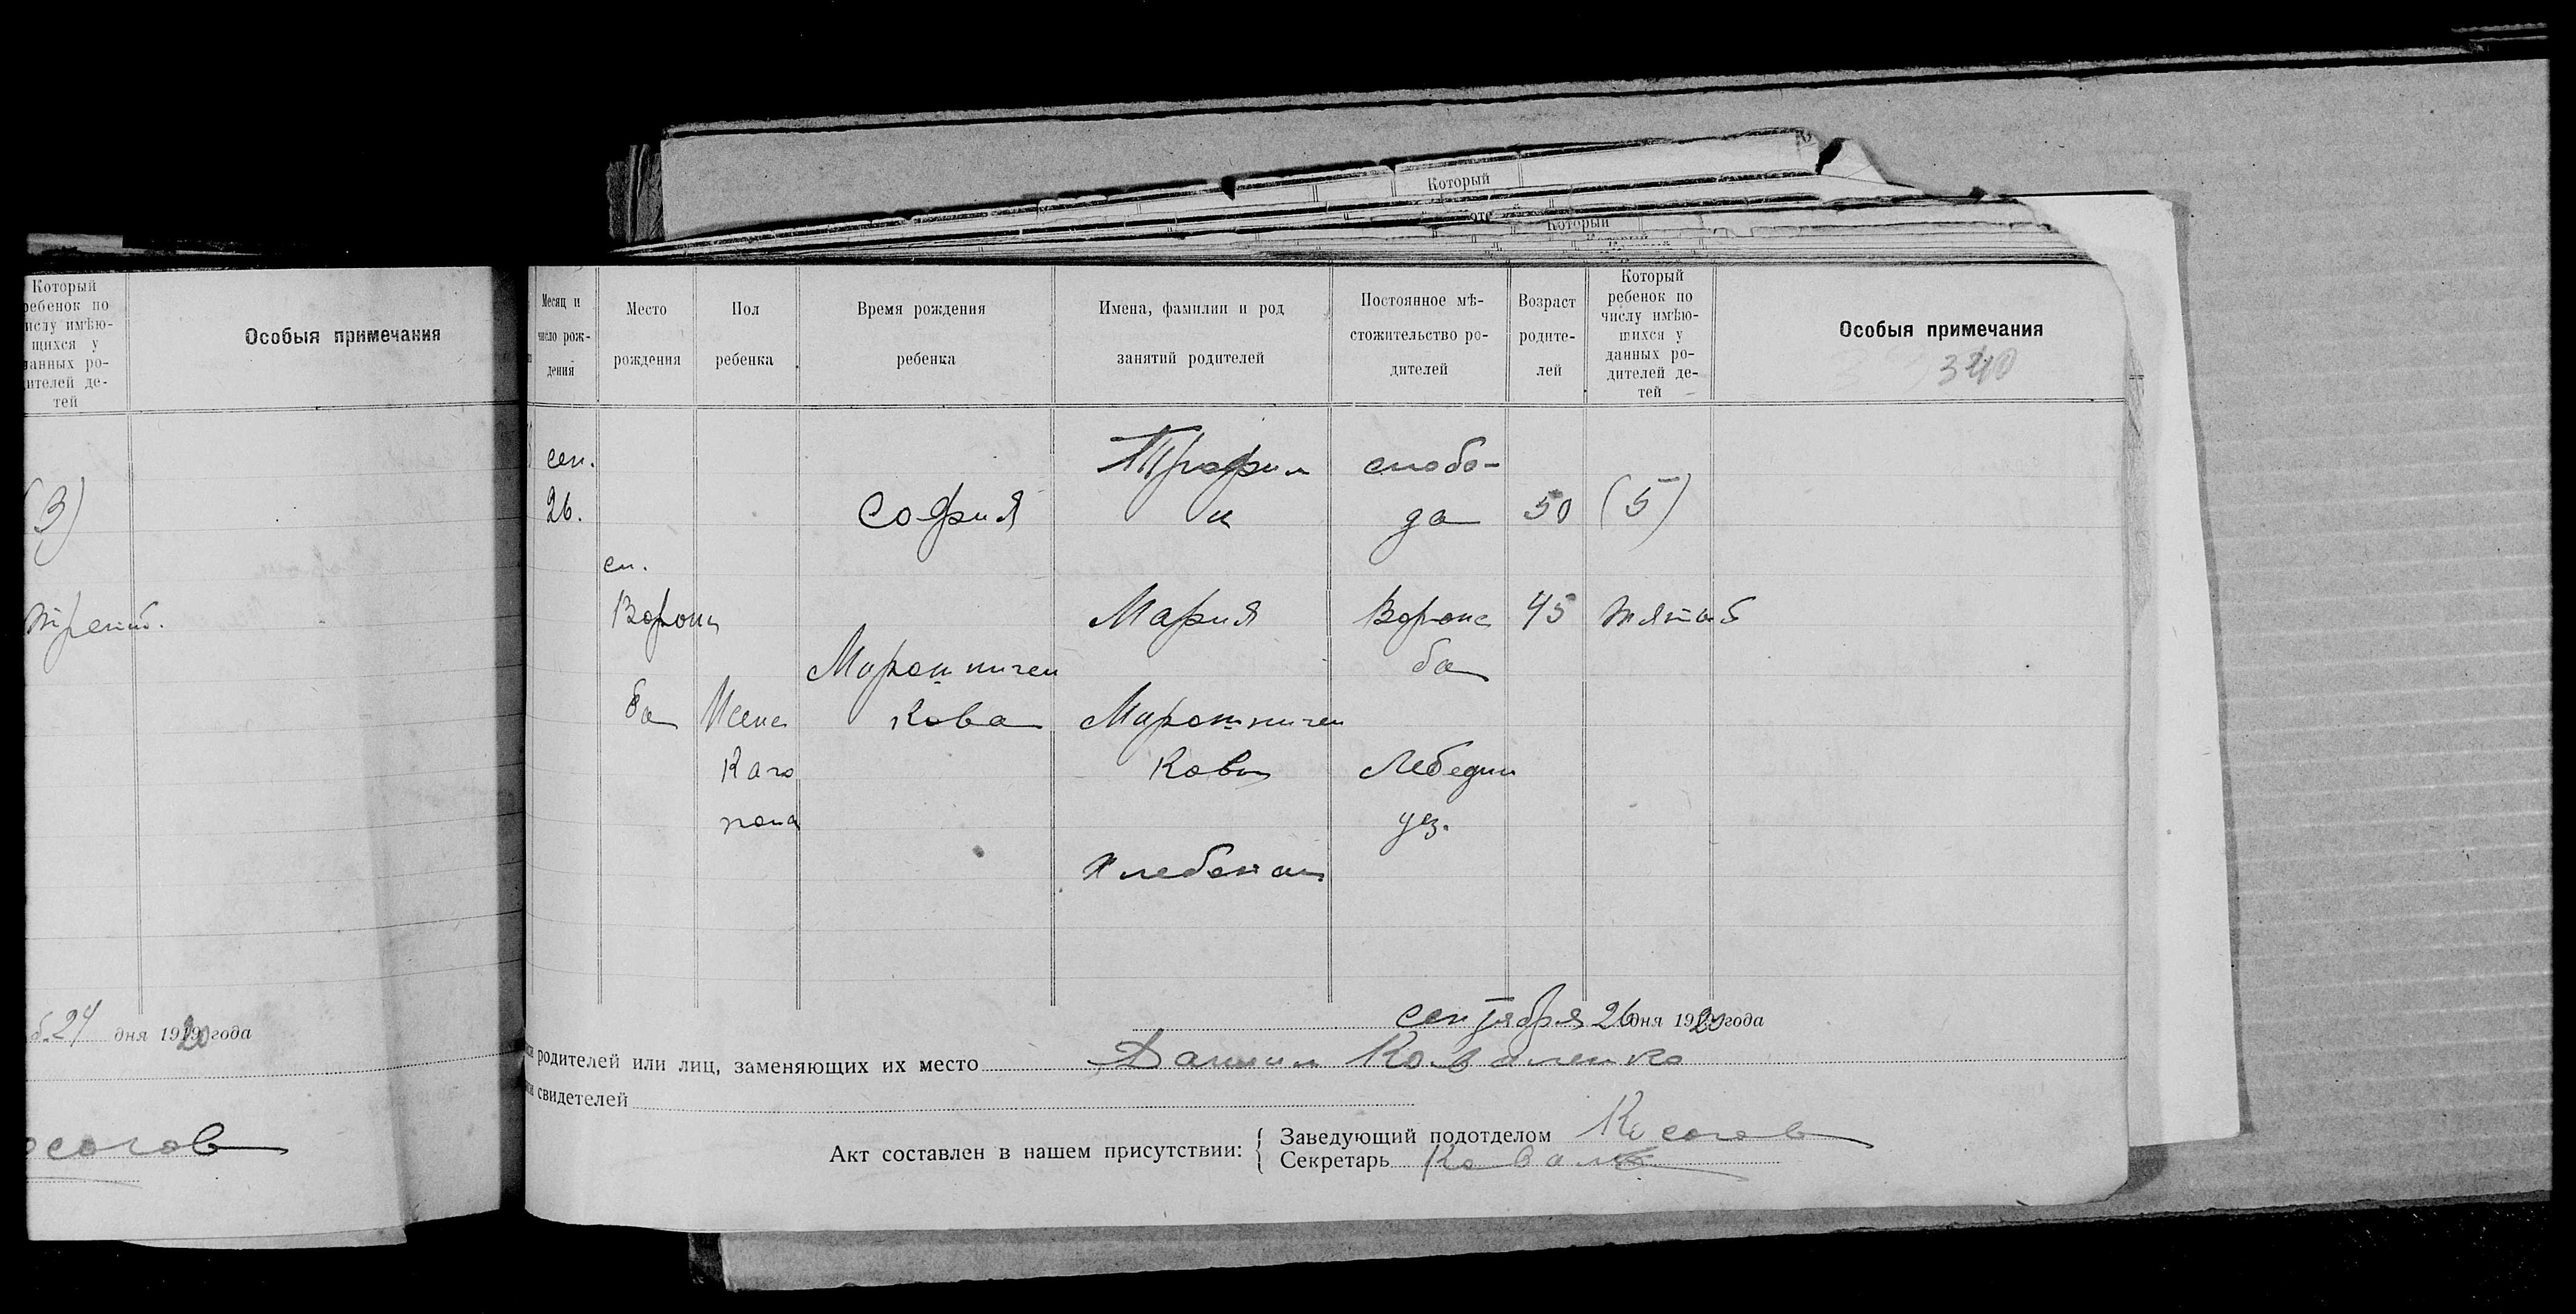 Который
Который
Который
ребенок по
числу имѣю-
щихся у
данных ро-
дителей де-
тей
Особыя примечания
(3)
третий.
24 дня 1920 года
Месяц и
число рож-
дения
Место
рождения
Пол
ребенка
Время рождения
ребенка
Имена, фамилии и род
занятий родителей
Постоянное мѣ-
стожительство ро-
дителей
Возраст
родите-
лей
Который
ребенок по
числу имѣю-
щихся у
данных ро-
дителей де-
тей
Особыя примечания
340
сен.
26.
сл.
Ворож
ба
Женс
каго
пола
София
Мирошничен
кова
Трофим
и
Мария
Мирошничен
ковы
Хлебопаш
слобо-
да
Ворож
ба
Лебедин
уез.
50
45
(5)
пятый
сентября 26 дня 1920 года
родителей или лиц, заменяющих их место Даниил Коваленко
свидетелей
Акт составлен в нашем присутствии:
Заведующий подотделом Косогов
Секретарь